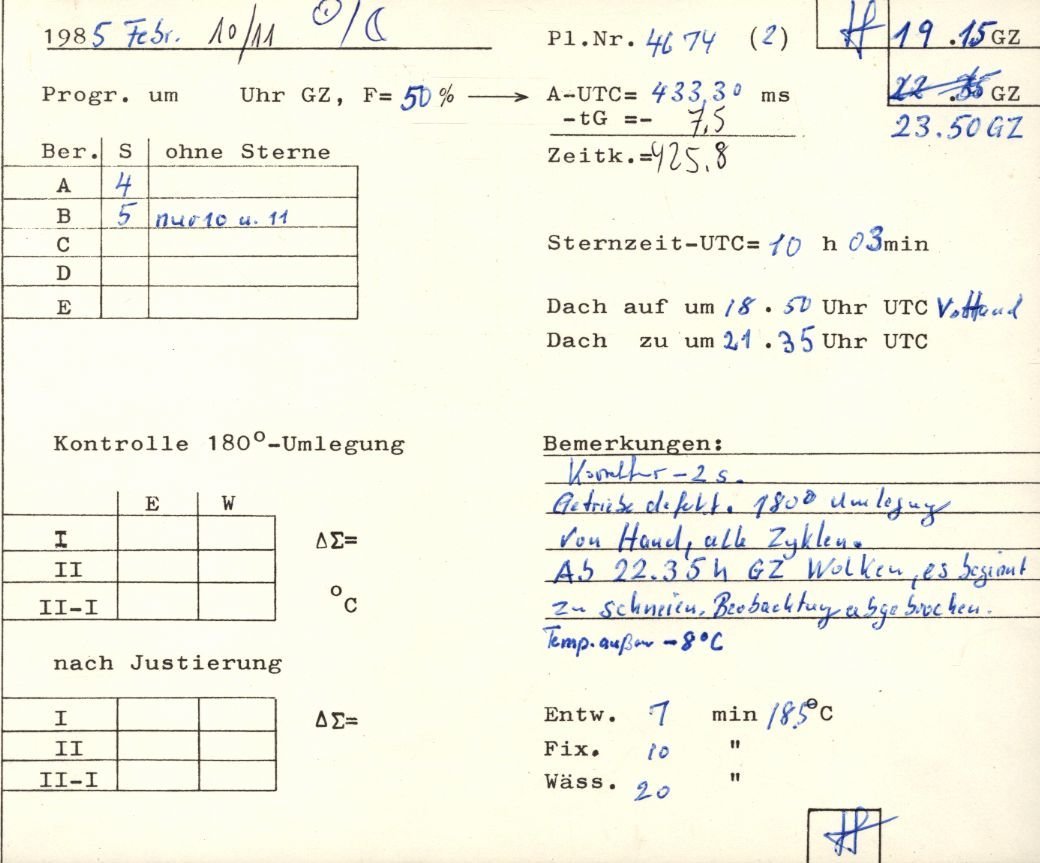 1985 Febr. 10/11 ☉/☾ Pl.Nr. 4674 (2) H 19.15 GZ
Progr. um Uhr GZ, F= 50 % → A-UTC= 433,30 ms 22.35 GZ
-tG =- 7,5 23.50 GZ
Ber. S ohne Sterne Zeitk.=425,8
A 4
B 5 nur 10 u. 11
C Sternzeit-UTC= 10 h 03min
D
E Dach auf um 18.50 Uhr UTC v. Hand
Dach zu um 21.35 Uhr UTC
Kontrolle 180°-Umlegung Bemerkungen:
Korrektur -2 s.
E W Getriebe defekt. 180° Umlegung
I ΔΣ= von Hand, alle Zyklen.
II Ab 22.35 h GZ Wolken, es beginnt
II-I °C zu schneien. Beobachtung abgebrochen.
Temp. außen -8°C
nach Justierung
I ΔΣ= Entw. 7 min 18,5°C
II Fix. 10 "
II-I Wäss. 20 "
H